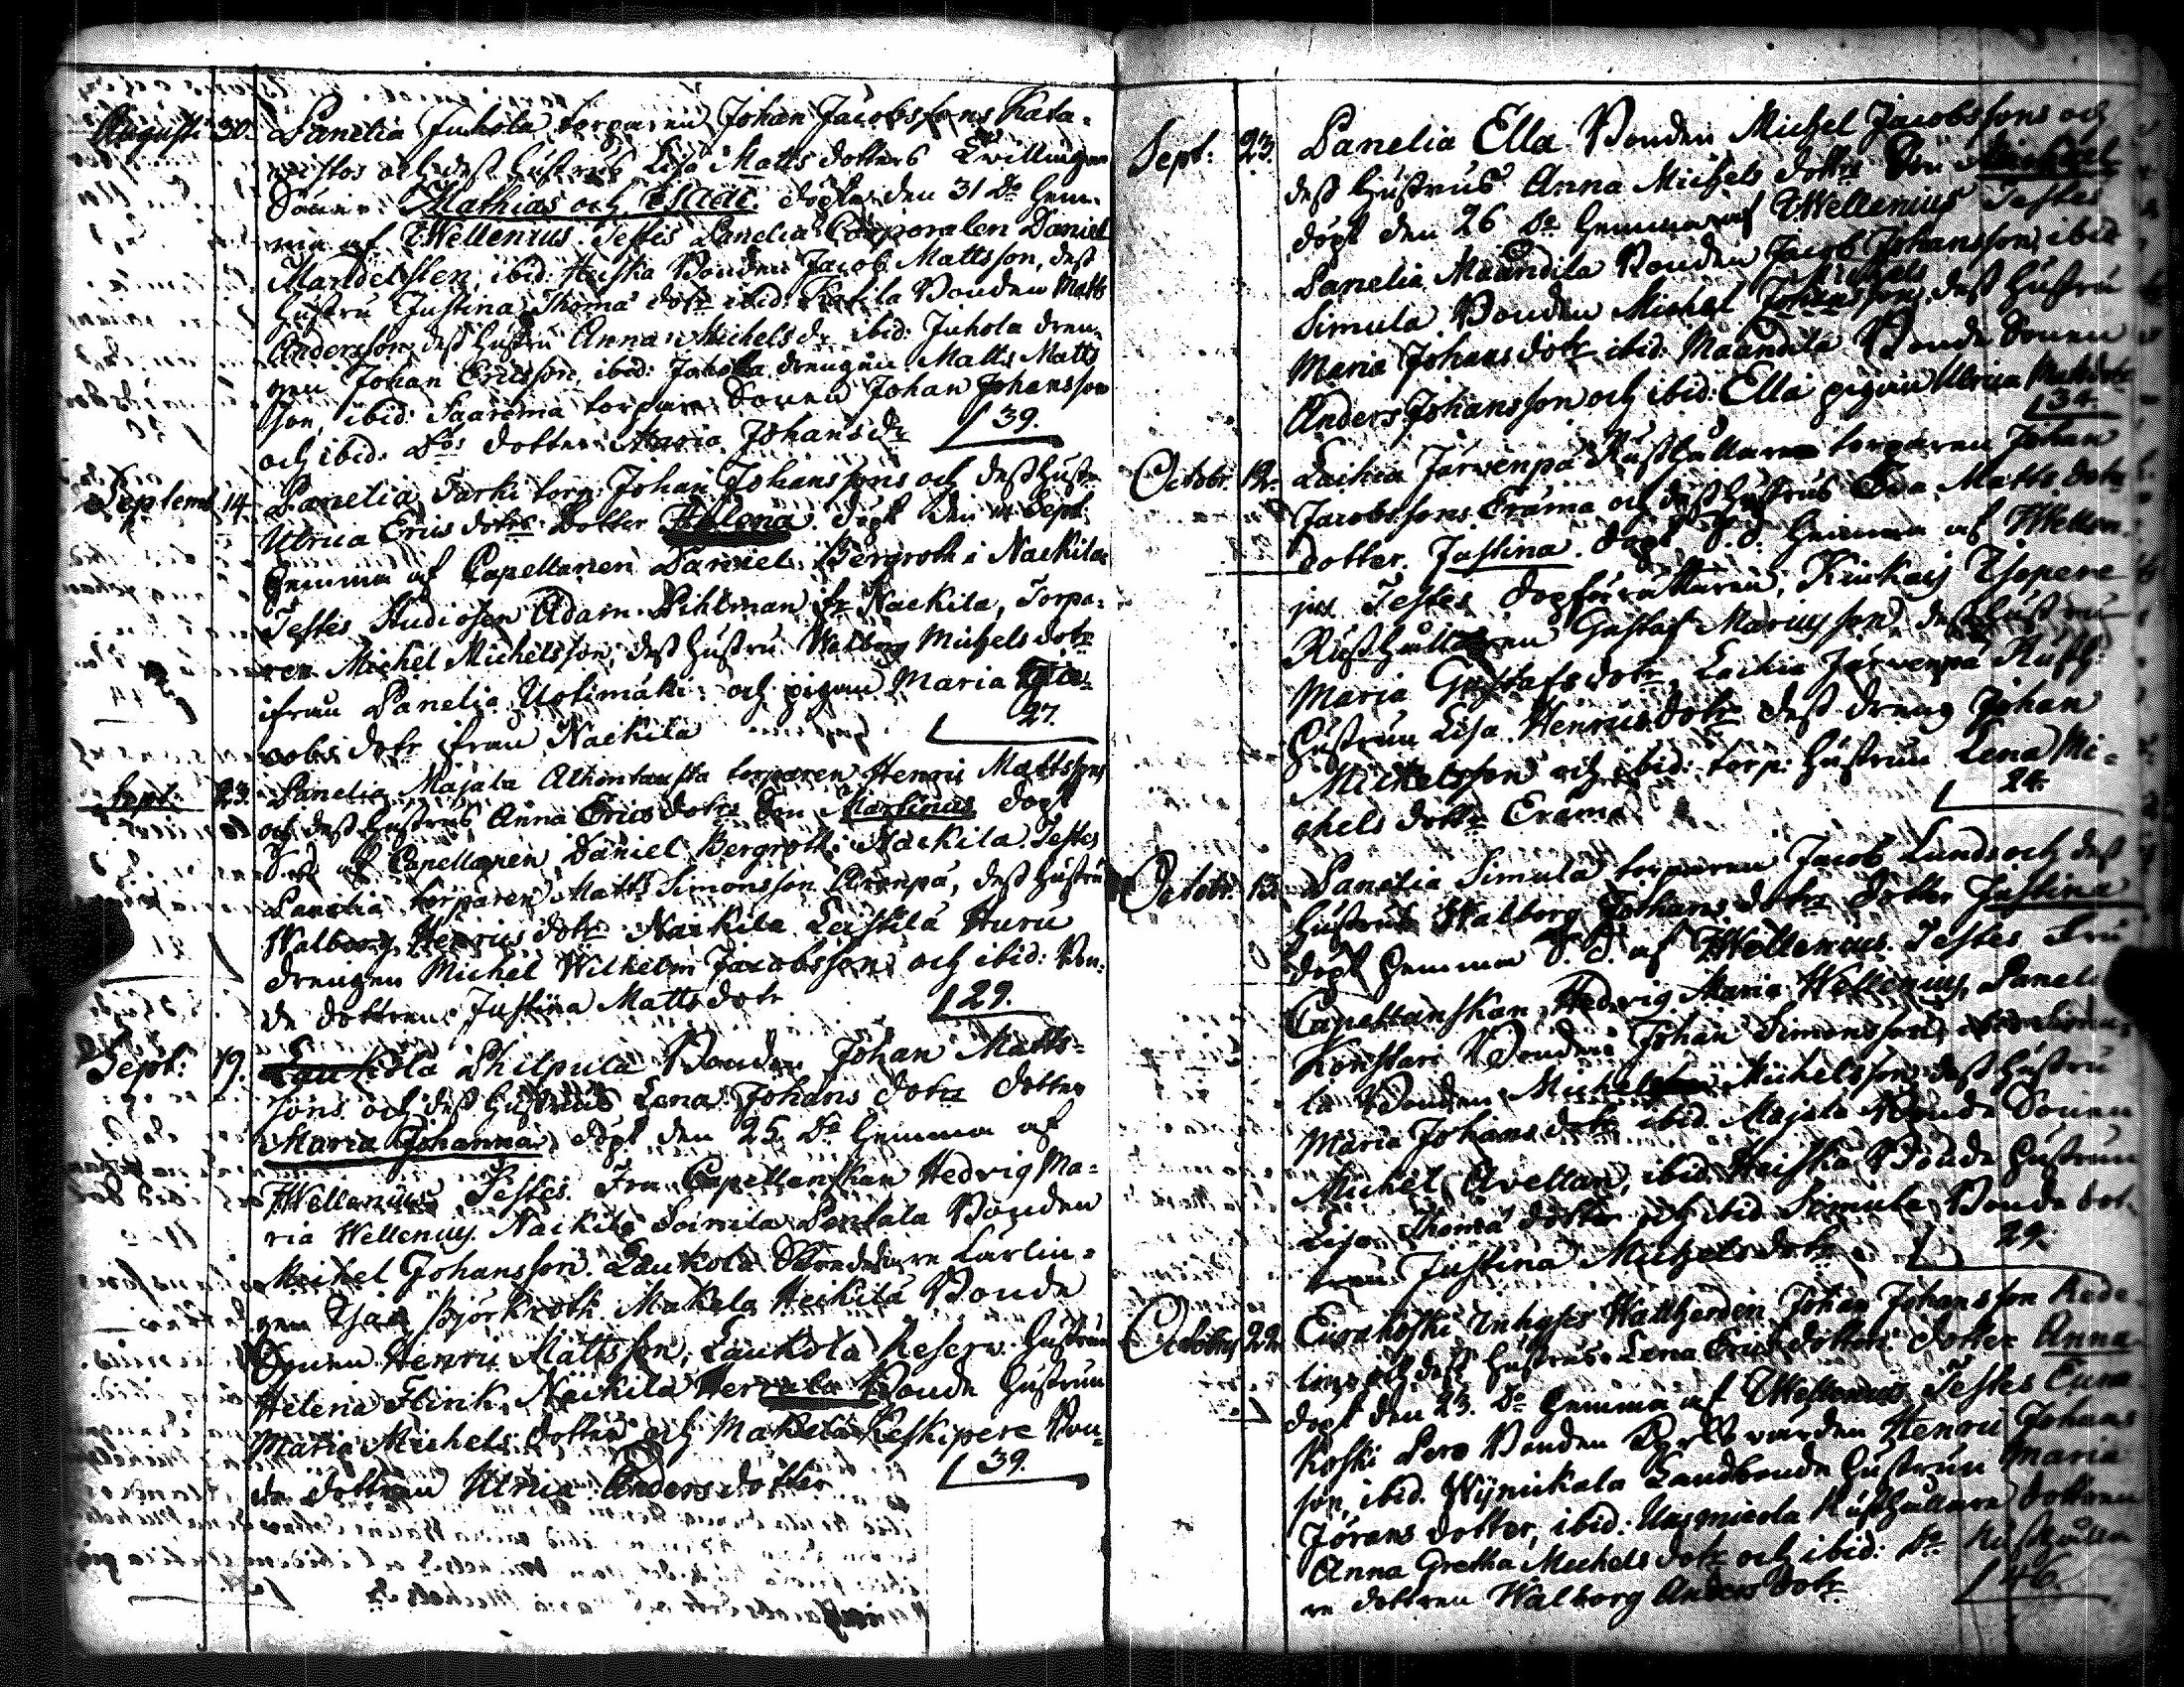 Augusti 30. Panelia Juhola torparen Johan Jacobssons Kata-
nistos och dess hustrus Lisa Matts dotters Twillingar
Söner. Mathias och Esaias. döpte den 31 D:o hem-
ma af TWellenius. Testis Panelia Corporalen Daniel
Mandelsten, ibid: Heiska Bonden Jacob Mattsson, dess
hustru Justina Thomæ dotr ibid: Kukila Bonden Matts
Andersson, dess hustru Anna Michels dr ibid: Juhola dren-
gen Johan Ericsson, ibid: Juhola drengen Matts Matts
son, ibid: Saarema torpare Sonen Johan Johansson
och ibid: D:os dotter Maria Johans dr 39.
Septemb 14. Panelia Sarki torp: Johan Johanssons och dess hustr.
Ulrica Erics dotrs dotter Helena. döpt den Sept.
hemma af Capellanen Daniel Bergroth i Naekila
Testes Studiosen Adam Pihlman ifr Naekila, Torpa-
ren Michel Michelsson, dess hustru Walborg Michels dotr
ifrån Panelia Uotimäki och pigan Maria Ja-
cobs dotr ifrån Naekila 27.
Sept: 23. Panelia Majala Alhontausta torparen Henric Mattssons
och dess hustrus Anna Erics dotrs Son Martinus döpt
S. d. af Capellanen Daniel Bergroth i Naekila. Testes
Panelia torparen Matts Simonsson Arenpä, dess hustru
Walborg Henrics dotr Naekila Leistilä Huru
drengen Michel Wilhelm Jacobsson och ibid: Bon-
de dottren Justina Matts dotr 29.
Sept: 19. Laukola Philpula Bonden Johan Matts-
sons och dess hustrus Lena Johans dotrs dotter
Maria Johanna, döpt den 25 D:o hemma af
TWellenius Testes. Fru Capellanskan Hedvig Ma-
ria Wellenius, Naekila Soinila Pentala Bonden
Michel Johansson. Laukola Skreddare Lärlin-
gen Isac Björkroth Makela Heikilä Bonde
Sonen Henric Mattsson, Laukola Reserv. hustrun
Helena Flink, Naekila Bonde hustrun
Maria Michels dotter och Makela Keskipere Bon-
de dottren Ulrica Anders dotter 39.
Sept: 23. Panelia Ella Bonden Michel Jacobssons och
dess hustrus Anna Michels dotrs Son Michael
döpt den 26 D:o hemma af TWellenius Testes
Panelia Maandila Bonden Jacob Johansson, ibid
Simula Bonden Michel Michels dess hustru
Maria Johans dotr ibid: Maandila Bonde Sonen
Anders Johansson och ibid: Ella pigan Ulrica Matts dotr
34.
Octobr. 12. Laihia Järvenpä Rusthållare torparen Johan
Jacobssons Erämä och dess hustrus Eva Matts dotrs
dotter. Justina. döpt S. d. hemma af TWellen-
ius Testes Kiukais Isopere
Rusthållaren Gustaf Mariusson, dess hustru
Maria Gustafs dotr, Laihia Järvenpä Rusth.
hustrun Lisa Henrics dotr dess dreng Johan
Michelsson och ibid: torp. hustrun Lena Mi-
chels dotr Erämä 24.
Octobr. 13. Panelia Simula torparen Jacob Lunds och dess
hustrus Walborg Johans dotrs dotter Justina
döpt hemma S. d. af TWellenius. Testes Fru
Capellanskan Hedvig Maria Wellenius, Panelia
Konstari Bonden Johan Simonsson, ibid Simu-
la Bonden Michel Michelsson, dess hustru
Maria Johans dotr ibid. Majala Bonde Sonen
Michel Avellan, ibid. Heiska Bonde hustrun
Lisa Thomæ dotter och ibid Simula Bonde dot-
tren Justina Michels dotr 29.
Octobr 22. Eurakoski Inhyses Johan Johansson Rede-
lins och dess hustrus Lena Erics dotters dotter Anna
döpt den 23. D:o hemma af TWellenius Testes Eura
koski Pero Bonden Henric Johans
son, ibid. Wijnikala Landbonde hustrun Maria
Jörans dotter, ibid: Rusthållare dottren
Anna Gretha Michels dotr och ibid: D:o Rusthålla
re dottren Walborg Anders dotr 46.